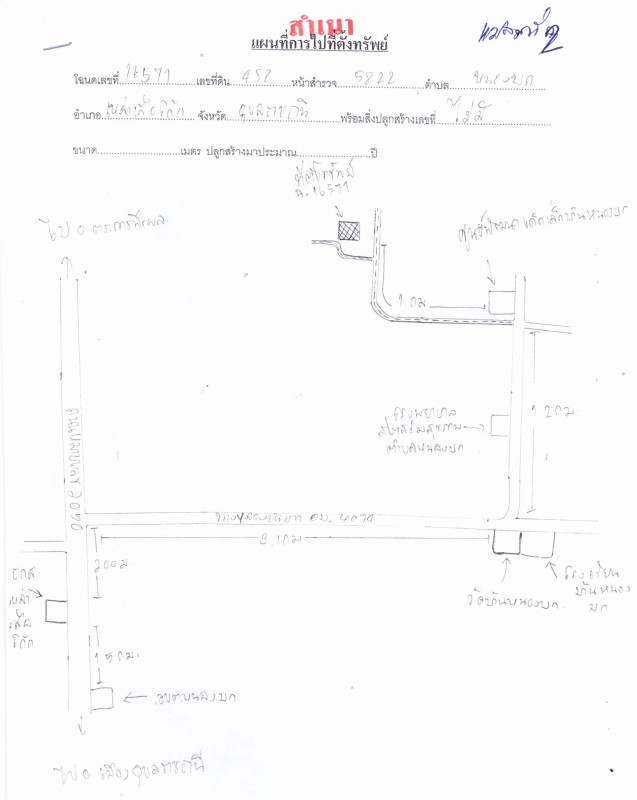 สำเนา
แผนที่การไปที่ตั้งทรัพย์
โฉนดเลขที่ 16571 เลขที่ดิน 457 หน้าสำรวจ 5822 ตำบล หนองบก
อำเภอ เหล่าเสือโก้ก จังหวัด อุบลราชธานี พร้อมสิ่งปลูกสร้างเลขที่ ไม่มี
ขนาด เมตร ปลูกสร้างมาประมาณ ปี
ที่ตั้งทรัพย์
ฉ.16571
ไป อ ตระการพืชผล
ศูนย์พัฒนาเด็กเล็กบ้านหนองบก
1 กม
โรงพยาบาล
ส่งเสริมสุขภาพ
ตำบลหนองบก
1.2 กม.
ถนนหมายเลข 2050
ทางหลวงชนบท อบ. 4074
8.1 กม
200 ม.
ธกส
เหล่า
เสือ
โก้ก
วัดบ้านหนองบก
โรงเรียน
บ้านหนอง
บก
1.5 กม.
อบต.หนองบก
ไป อ เมืองอุบลราชธานี